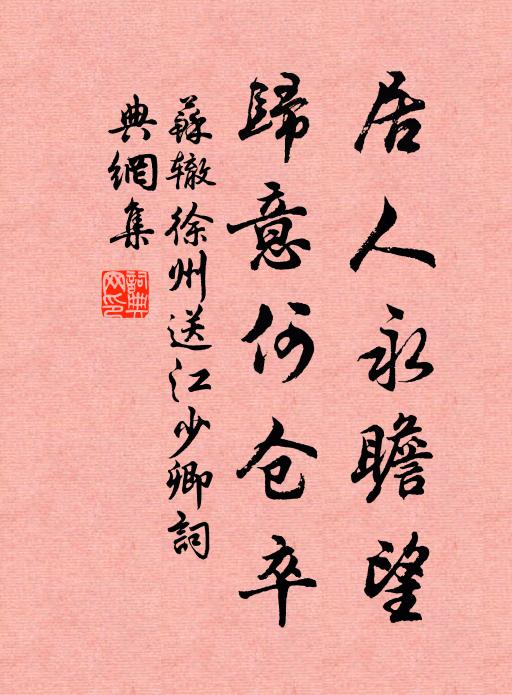 居人永瞻望
歸意何仓卒
蘇辙徐州送江少卿詞
典網集
詞典
网印